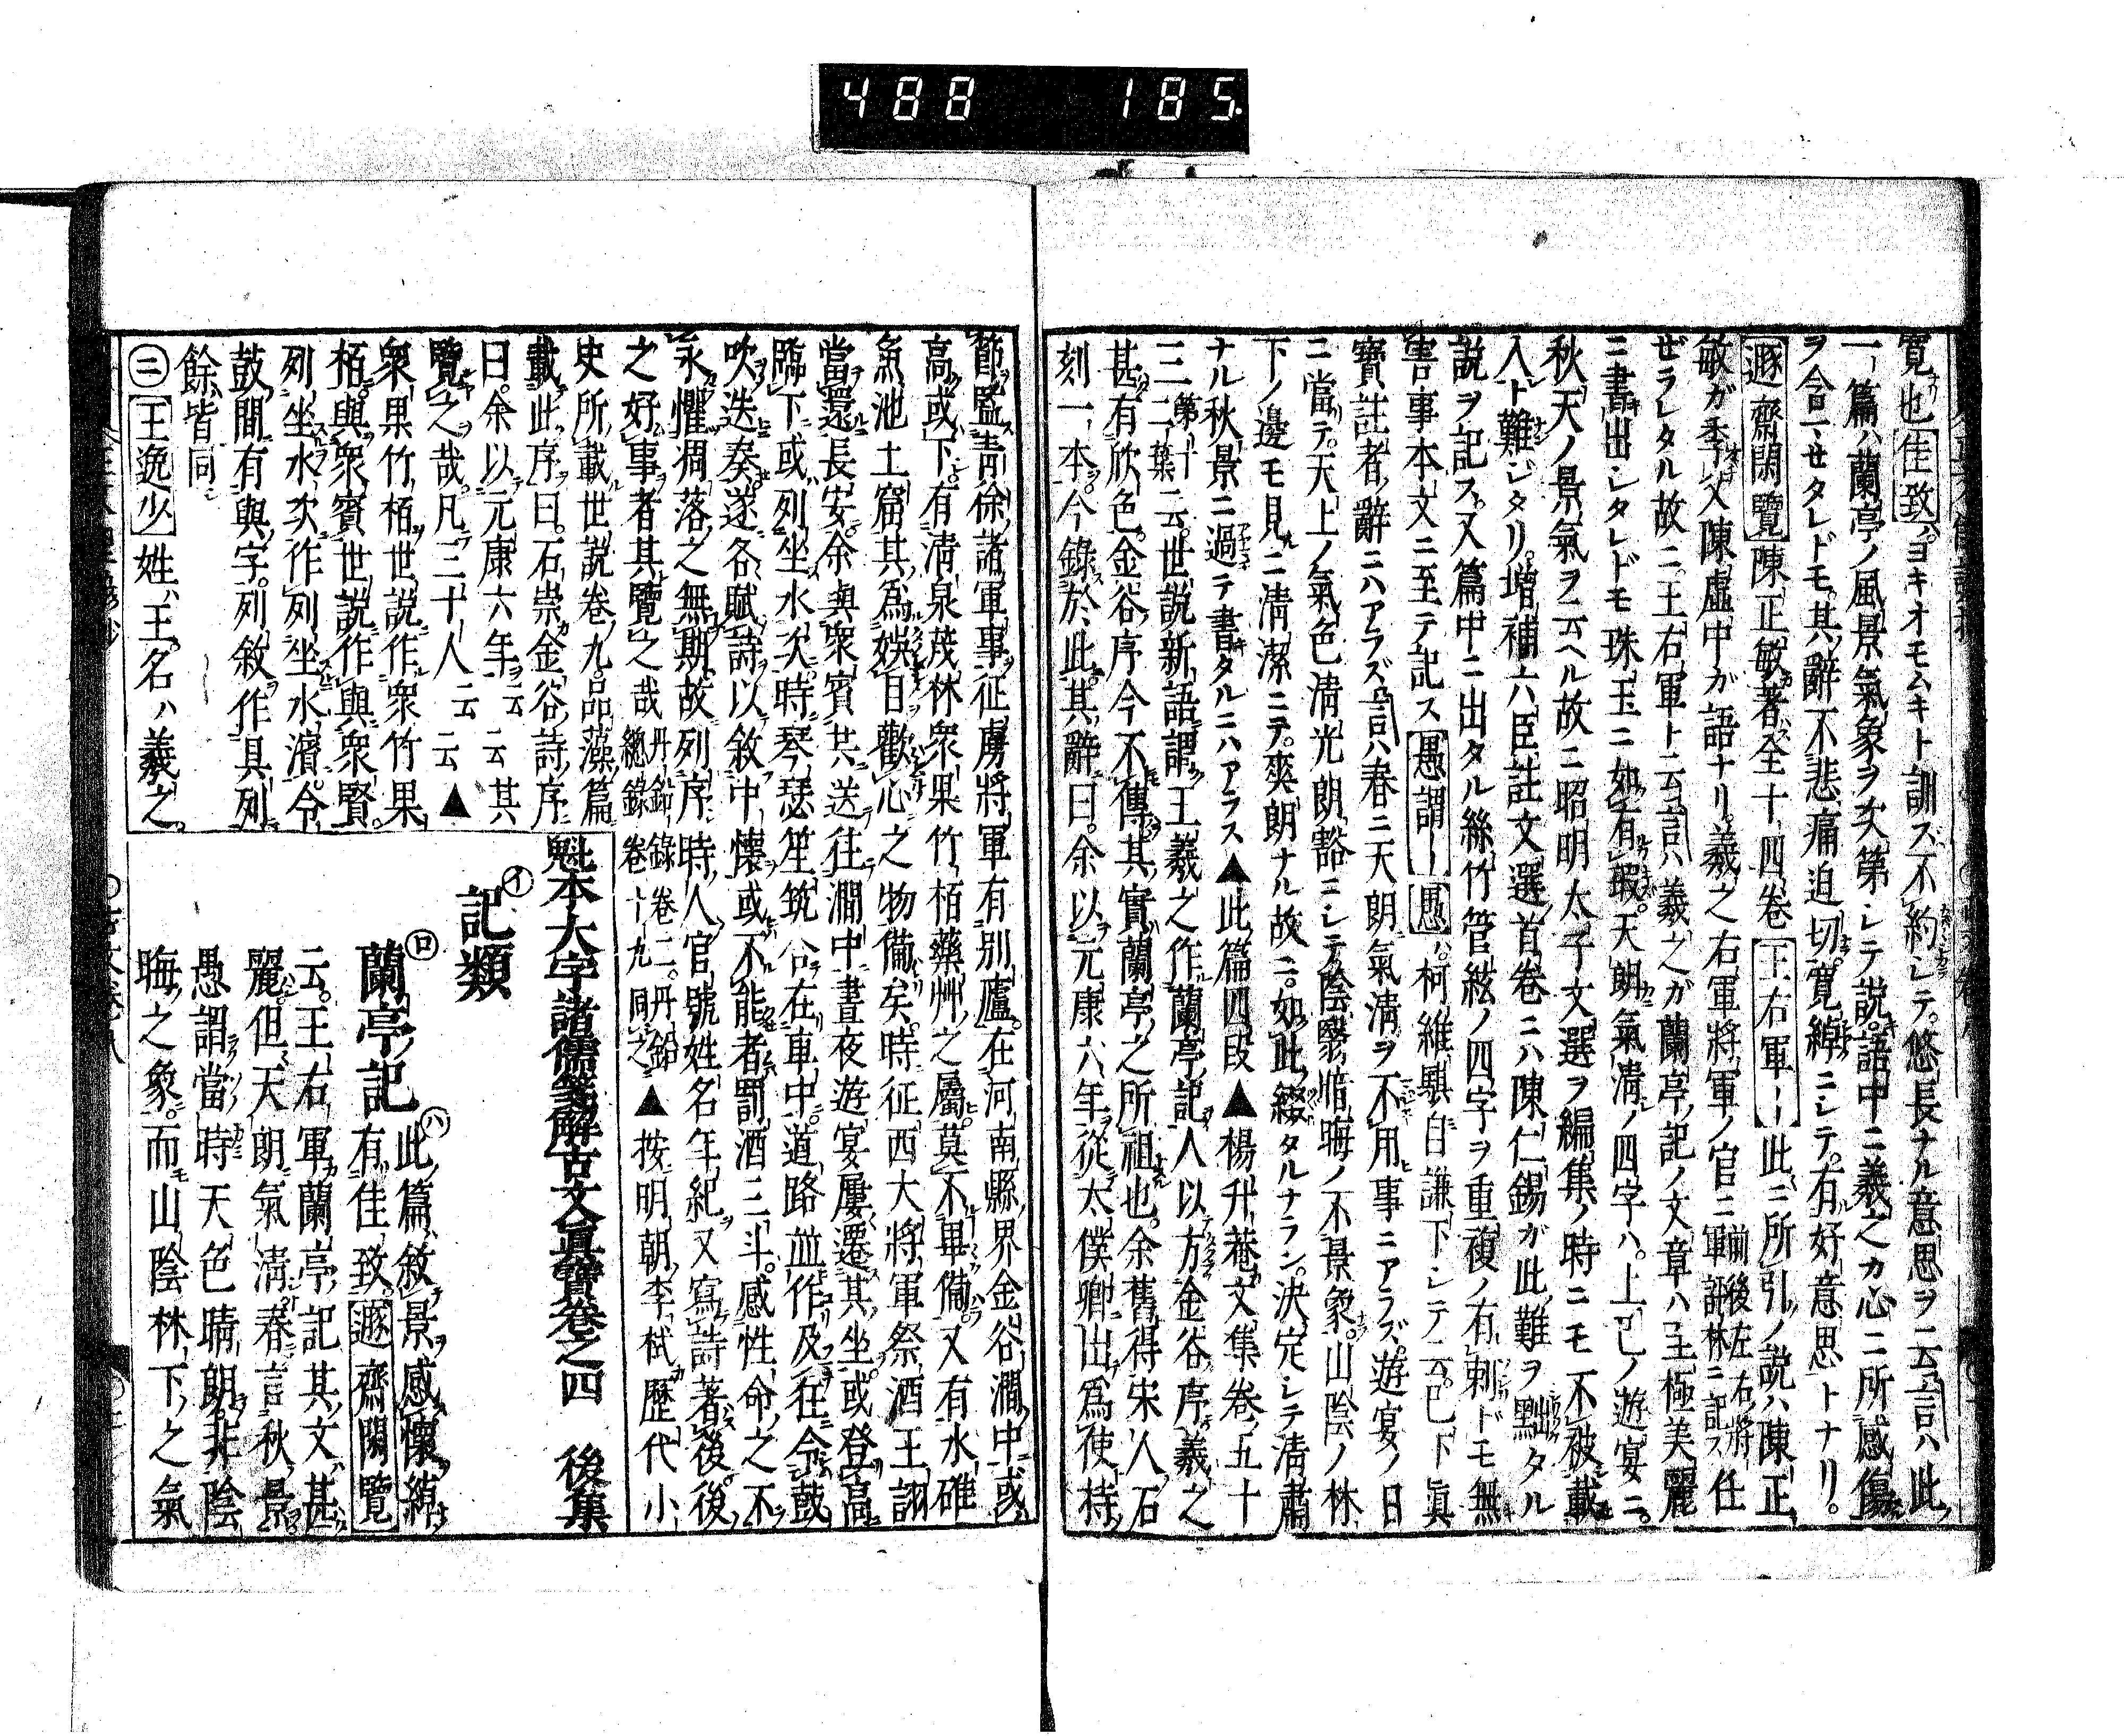 488 185.
寛也佳致ハヨキオモムキト訓ズ不約シテ悠長ナル意思ヲ云言ハ此
一篇ハ蘭亭ノ風景氣象ヲ次第シテ説語中ニ羲之カ心ニ所感傷
ヲ含マセタレドモ其辭不悲痛迫切寛綽ニシテ有好意思トナリ
遯齋閑覽陳正敏著全十四卷王右軍――此ニ所引ノ説ハ陳正
敏ガ季父陳虚中ガ語ナリ羲之右軍將軍ノ官ニ前後左右將軍評林ニ記ス任
ゼラレタル故ニ王右軍ト云言ハ羲之ガ蘭亭記ノ文章ハ至極美麗
ニ書出シタレドモ珠玉ニ如有瑕天朗氣清ノ四字ハ上巳ノ遊宴ニ
秋天ノ景氣ヲ云ヘル故ニ昭明太子文選ヲ編集ノ時ニモ不被載
入ト難ジタリ増補六臣註文選首卷ニハ陳仁錫ガ此難ヲ黜タル
説ヲ記ス又篇中ニ出タル絲竹管絃ノ四字ヲ重複ノ有剌ドモ無
害事本文ニ至テ記ス愚謂――愚ハ柯維騏自謙下シテ云已下眞
寶註者ノ辭ニハアラズ言ハ春ニ天朗氣清ヲ不用事ニアラズ遊宴ノ日
ニ當テ天上ノ氣色清光朗豁ニシテ陰翳暗晦ノ不景象山陰ノ林
下ノ邊モ見ニ清潔ニテ爽朗ナル故ニ如此綴タルナラン決定シテ清肅
ナル秋景ニ過テ書タルニハアラス▲此篇四段▲楊升菴文集卷五十
三二第十葉云世説新語謂王羲之作蘭亭記人以方金谷序羲之
甚有欣色金谷序今不傳其實蘭亭之所祖也余舊得宋人石
刻一本今錄於此其辭曰余以元康六年從太僕卿出爲使持
節監靑徐諸軍事征虜將軍有別廬在河南縣界金谷澗中或
高或下有清泉茂林衆果竹栢藥艸之屬莫不畢備又有水碓
魚池土窟其爲娯目歡心之物備矣時征西大將軍祭酒王詡
當還長安余與衆賓共送往澗中晝夜遊宴屢遷其坐或登高
臨下或列坐水次時琴瑟笙筑合在車中道路並作及住令鼓
吹迭奏遂各賦詩以敘中懷或不能者罰酒三斗感性命之不
永懼凋落之無期故列序時人官號姓名年紀又寫詩著後後
之好事者其覽之哉丹鉛總錄卷十九丹鉛錄卷二同之▲按明朝李栻歴代小
史所載世説卷九品藻篇
載此序曰石崇金谷詩序
曰余以元康六年云云其
覽之哉凡三十人云云▲
衆果竹栢世説作衆竹果
栢與衆賓世説作與衆賢
列坐水次作列坐水濱令
鼓間有與字列敘作具列
餘皆同
㊁王逸少姓ハ王名ハ羲之
魁本大字諸儒箋解古文眞寶卷之四 後集
㋑記類
㋺蘭亭記㋩此篇敘景感懷綽
有佳致遯齋閑覽
云王右軍蘭亭記其文甚
麗但天朗氣清春言秋景
愚謂當時天色晴朗非陰
晦之象而山陰林下之氣